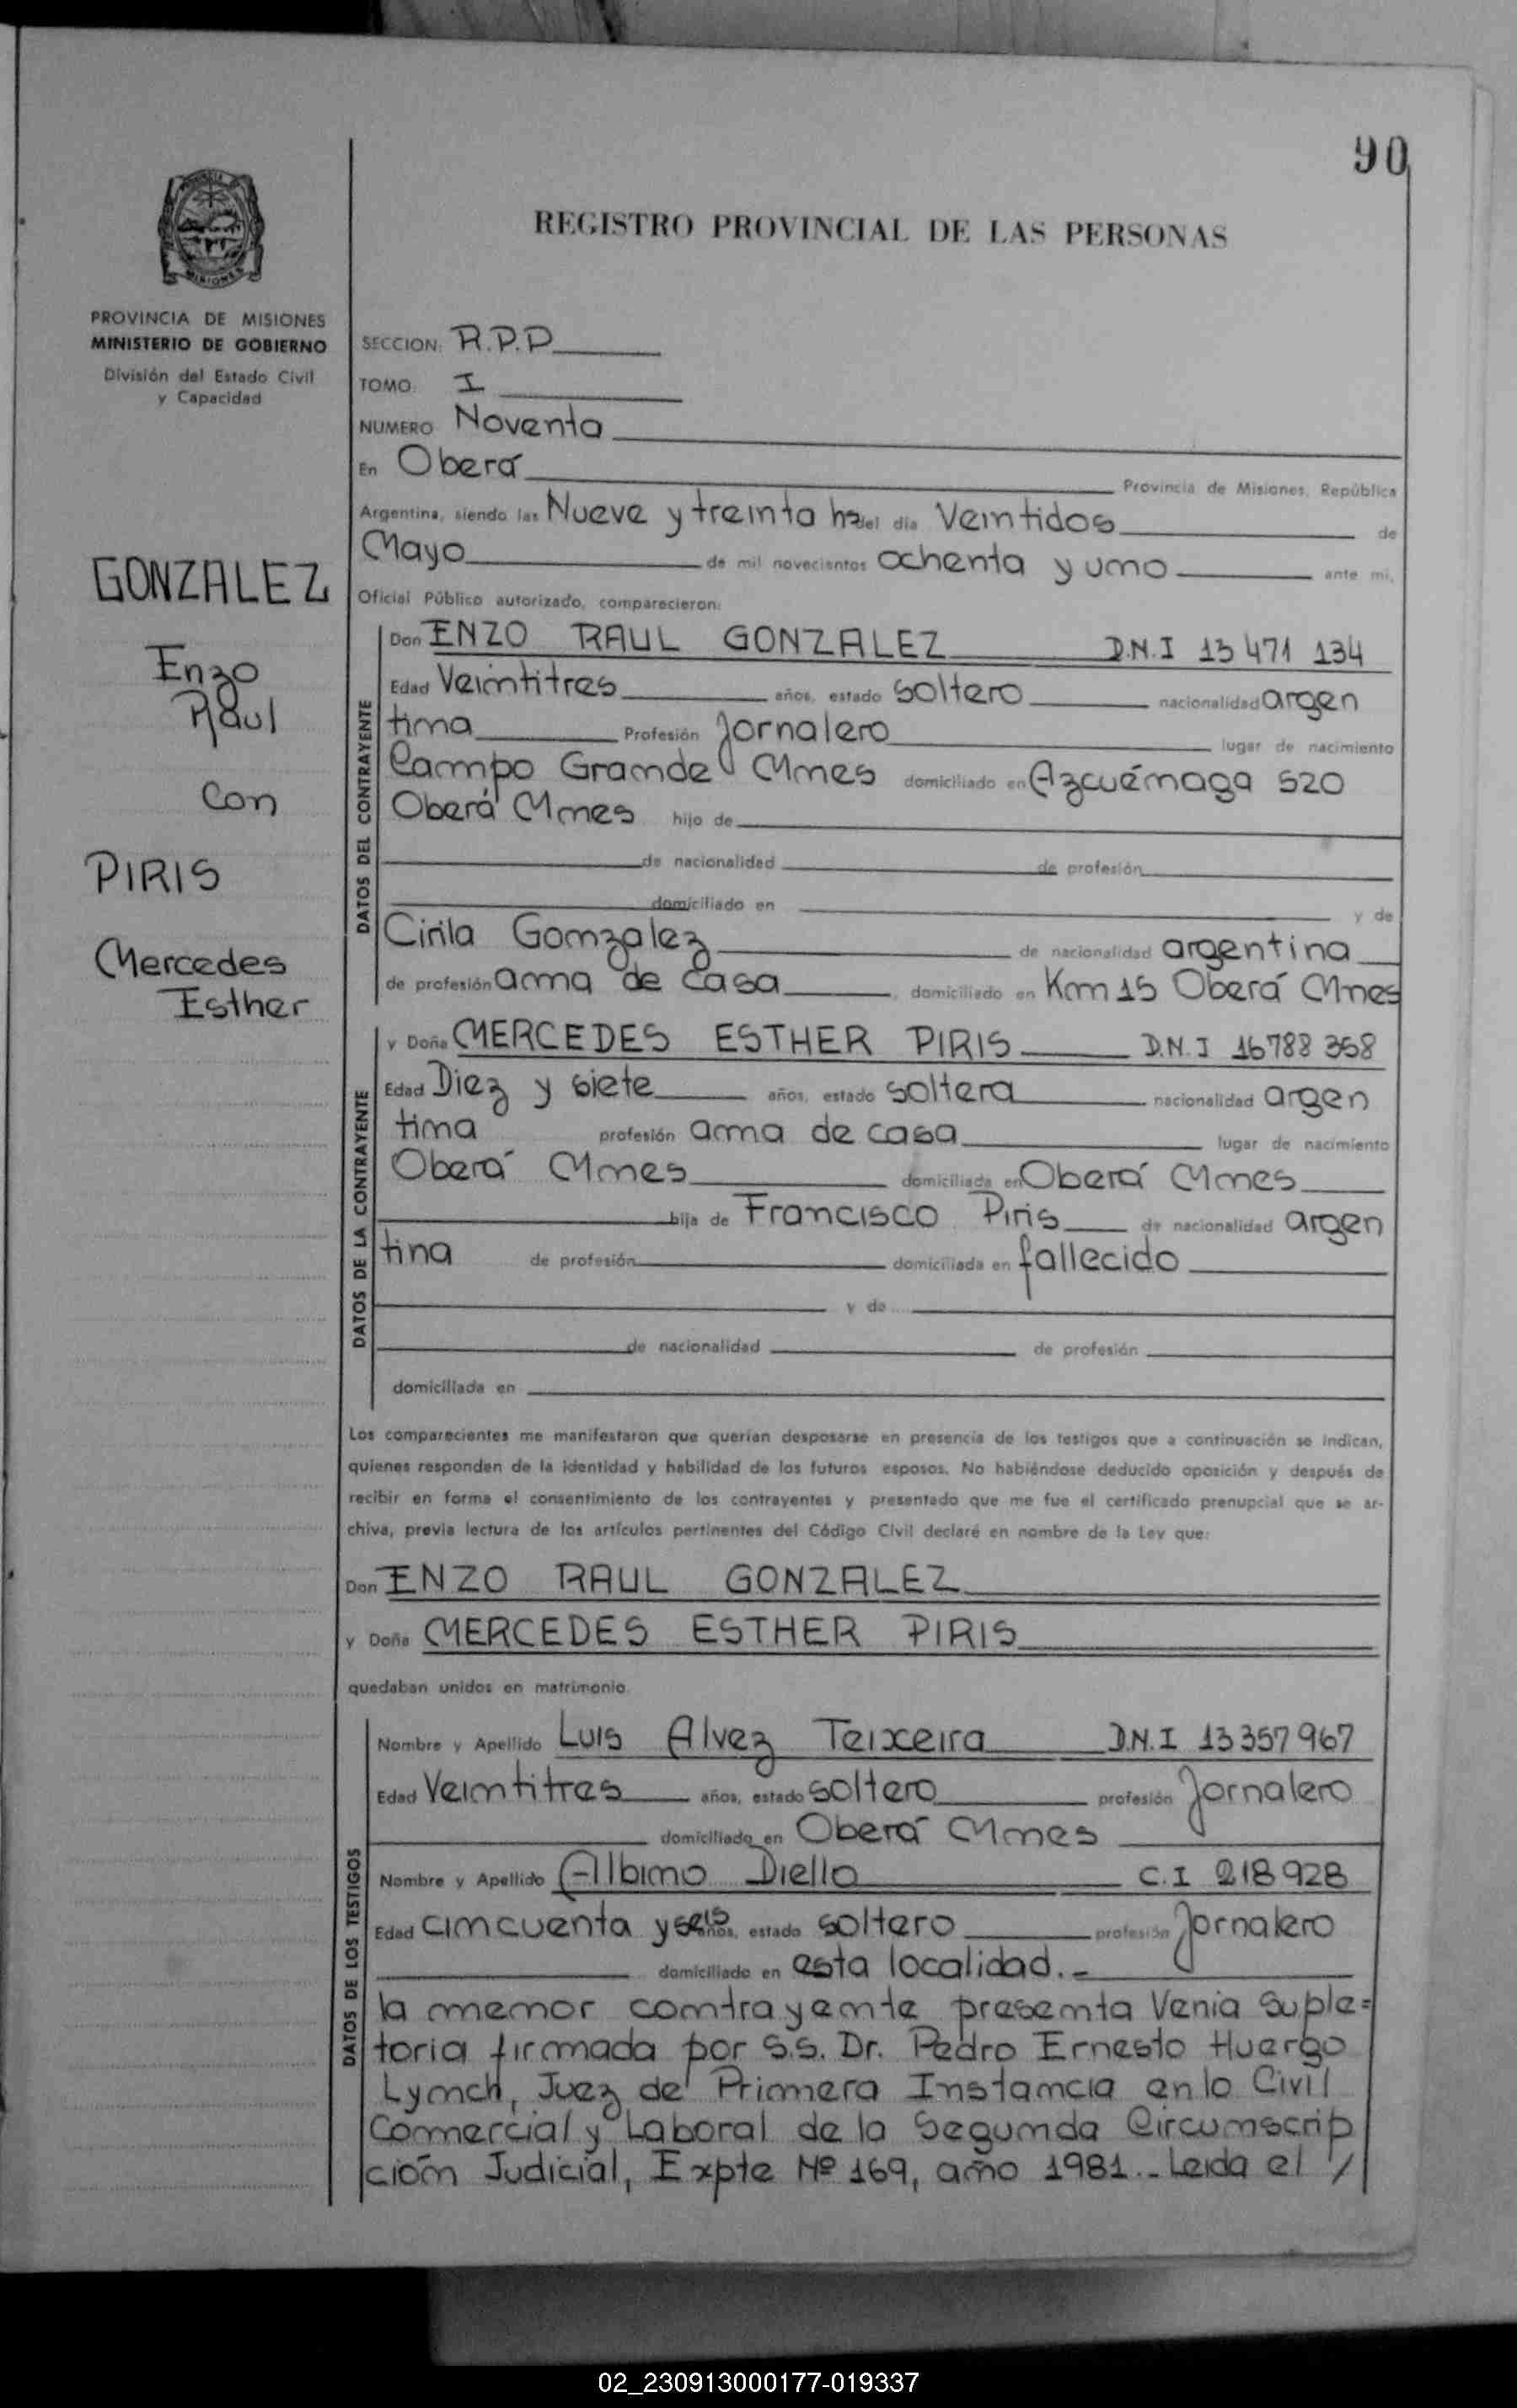 90
REGISTRO PROVINCIAL DE LAS PERSONAS
PROVINCIA DE MISIONES
MINISTERIO DE GOBIERNO
División del Estado Civil
y Capacidad
GONZALEZ
Enzo
Raul
con
PIRIS
Mercedes
Esther
SECCION: R.P.P
TOMO: I
NUMERO Noventa
En Oberá Provincia de Misiones, República
Argentina, siendo las Nueve y treinta hs del día Veintidos de
Mayo de mil novecientos ochenta y uno ante mi,
Oficial Público autorizado, comparecieron:
DATOS DEL CONTRAYENTE
Don ENZO RAUL GONZALEZ D.N.I 13 471 134
Edad Veintitres años, estado soltero nacionalidad argen
tina Profesión Jornalero lugar de nacimiento
Campo Grande Mnes domiciliado en Azcuénaga 520
Oberá Mnes hijo de
de nacionalidad de profesión
domiciliado en y de
Cirila Gonzalez de nacionalidad argentina
de profesión ama de casa, domiciliado en Km 15 Oberá Mnes
DATOS DE LA CONTRAYENTE
y Doña MERCEDES ESTHER PIRIS D.N.I 16788 368
Edad Diez y siete años, estado soltera nacionalidad argen
tina profesión ama de casa lugar de nacimiento
Oberá Mnes domiciliada en Oberá Mnes
hija de Francisco Piris de nacionalidad argen
tina de profesión domiciliada en fallecido
y de
de nacionalidad de profesión
domiciliada en
Los comparecientes me manifestaron que querían desposarse en presencia de los testigos que a continuación se indican,
quienes responden de la identidad y habilidad de los futuros esposos. No habiéndose deducido oposición y después de
recibir en forma el consentimiento de los contrayentes y presentado que me fue el certificado prenupcial que se ar-
chiva, previa lectura de los artículos pertinentes del Código Civil declaré en nombre de la Ley que:
Don ENZO RAUL GONZALEZ
y Doña MERCEDES ESTHER PIRIS
quedaban unidos en matrimonio.
DATOS DE LOS TESTIGOS
Nombre y Apellido Luis Alvez Teixeira D.N.I 13357967
Edad Veintitres años, estado soltero profesión Jornalero
domiciliado en Oberá Mnes
Nombre y Apellido Albino Diello C.I 218928
Edad cincuenta y seis años, estado soltero profesión Jornalero
domiciliado en esta localidad.-
la menor contrayente presenta Venia Suple=
toria firmada por S.S. Dr. Pedro Ernesto Huergo
Lynch, Juez de Primera Instancia en lo Civil
Comercial y Laboral de la Segunda Circunscrip
ción Judicial, Expte Nº 169, año 1981.- Leida el /
02_230913000177-019337